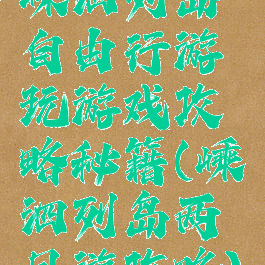 嵊泗列岛
自由行游
玩游戏攻
略秘籍(嵊
泗列岛两
日游攻略)